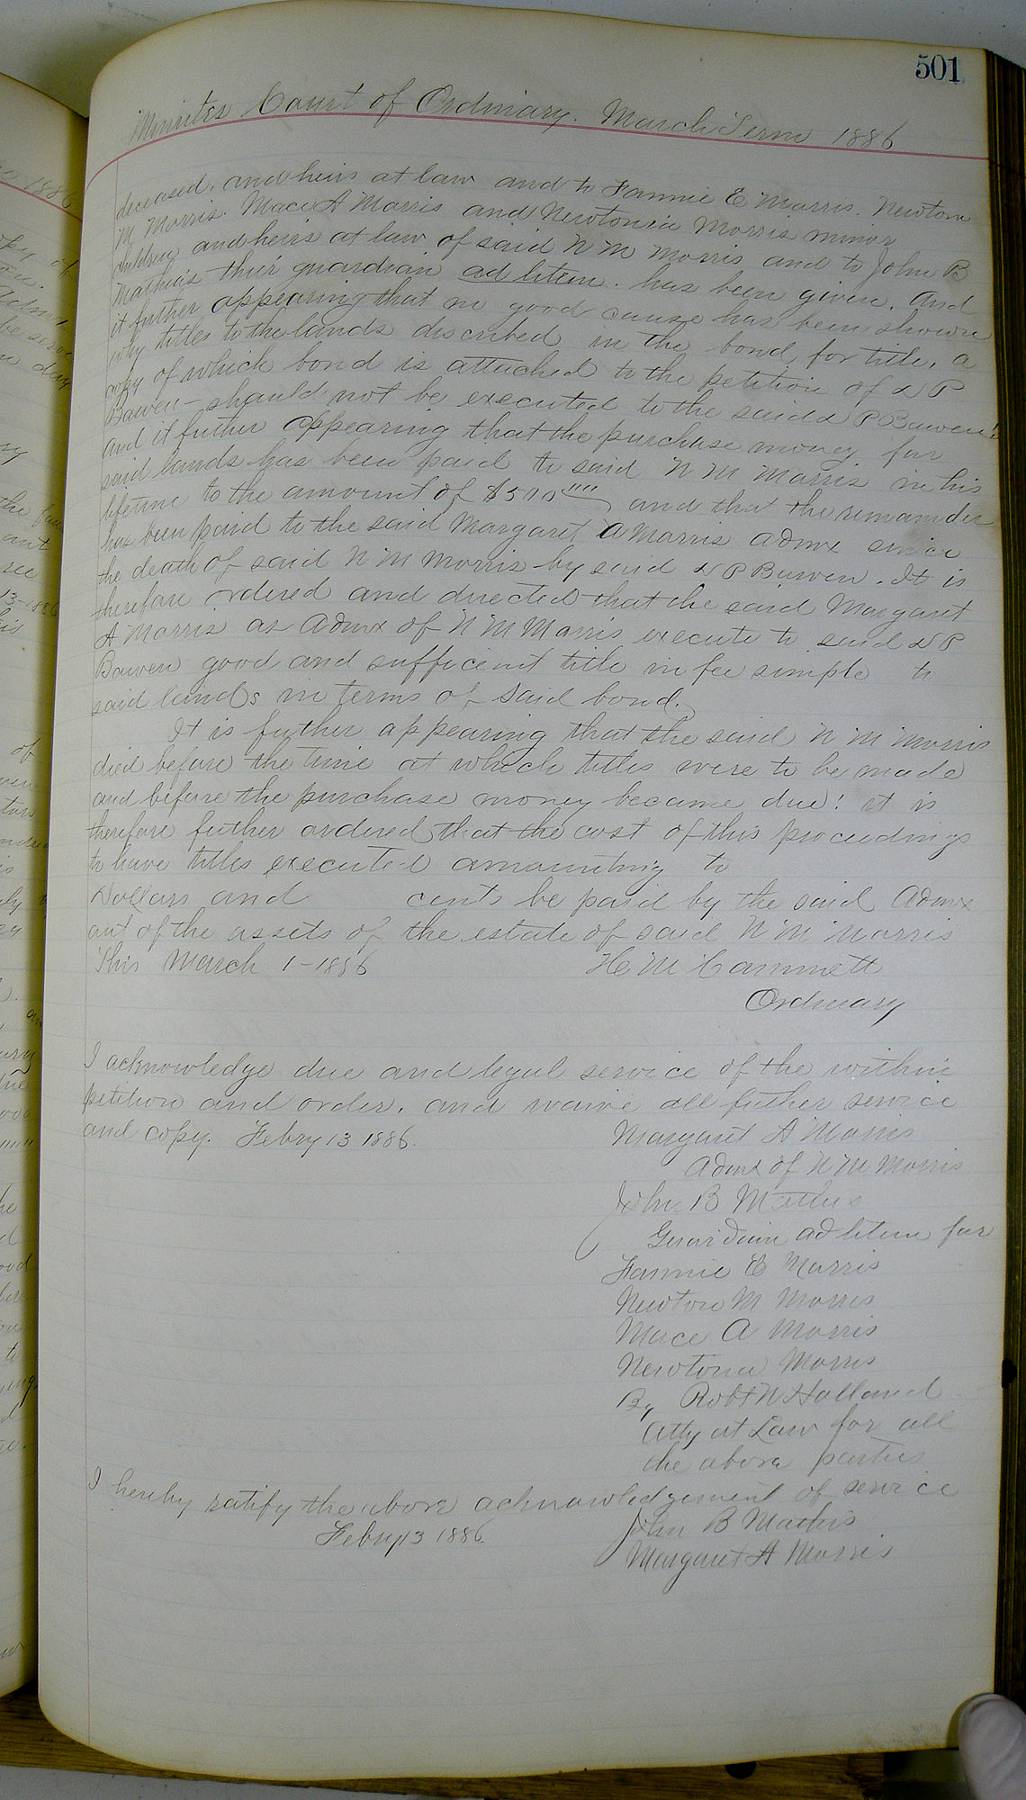 501
Minutes Court of Ordinary. March Term 1886
deceased. and heirs at law and to Fannie E Morris. Newton
M Morris. Mace A Morris and Newtonia Morris minor
children and heirs at law of said N M Morris and to John B
Mathis their guardian ad litem. has been given. And
it futher appearing that no good cause has been shown
why titles to the lands discribed in the bond for title, a
copy of which bond is attached to the petition of L P
Bowen - should not be executed to the said L P Bowen:
and it futher appearing that the purchase money for
said lands has been paid to said N M Morris in his
lifetime to the amount of and that the remainder
has been paid to the said Margaret A Morris admx since
the death of said N M Morris by said L P Bowen. It is
therefore ordered and directed that the said Margaret
A Morris as Admx of N M Morris execute to said L P
Bowen good and sufficient title in fee simple to
said lands in terms of said bond.
It is futher appearing that the said N M Morris
died before the time at which titles were to be made
and before the purchase money became due: it is
therefore futher ordered that the cost of this proceedings
to have titles executed amounting to
Dollars and cents be paid by the said Admx
out of the assets of the estate of said N M Morris
This March 1-1886 H M Cammett
Ordinary
I acknowledge due and legal service of the within
petition and order. and waive all futher service
and copy. Febry 13 1886. Margaret A Morris
Admx of N M Morris
John B Mathis
Guardian ad litem for
Fannie E Morris
Newton M Morris
Mace A Morris
Newtonia Morris
By Robt N Holland
Atty at Law for all
the above parties
I hereby ratify the above acknowledgement of service
Febry 13 1886 John B Mathis
Margaret A Morris